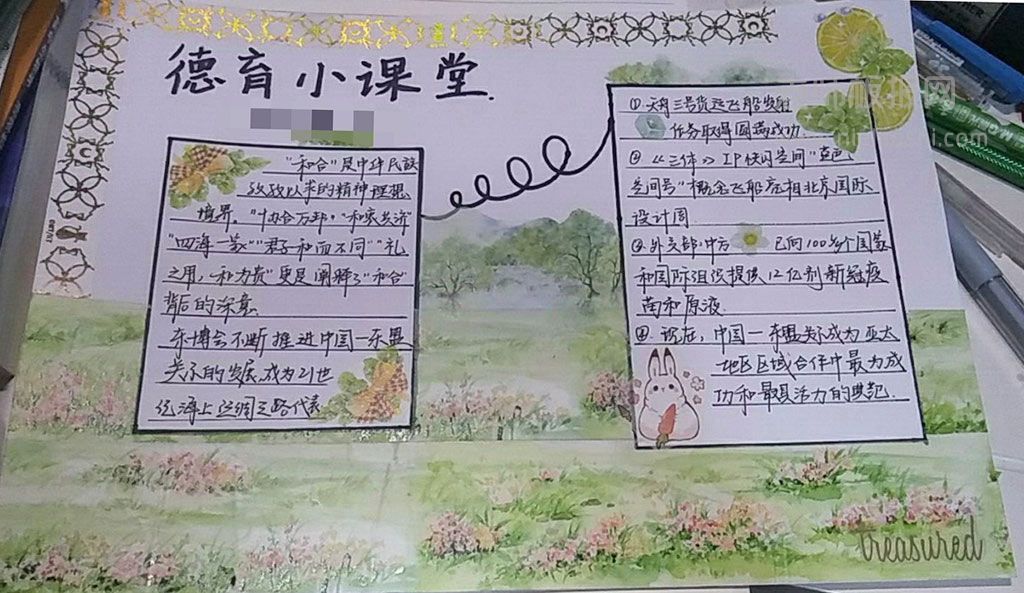 德育小课堂.
"和合"是中华民族
孜孜以求的精神理想
境界。"协合万邦。"和衷共济"
"四海一家""君子和而不同""礼
之用,和为贵"更是阐释了"和合"
背后的深意.
东博会不断推进中国一东盟
关系的发展.成为21世
纪海上丝绸之路代表
①天舟三号货运飞船发射
任务取得圆满成功.
②《三体》IP快闪空间"蓝色
空间号"概念飞船亮相北京国际
设计周.
③外交部:中方已向100多个国家
和国际组织提供12亿剂新冠疫
苗和原液.
④.现在,中国一东盟关系成为亚太
地区区域合作中最为成
功和最具活力的典范.
treasured